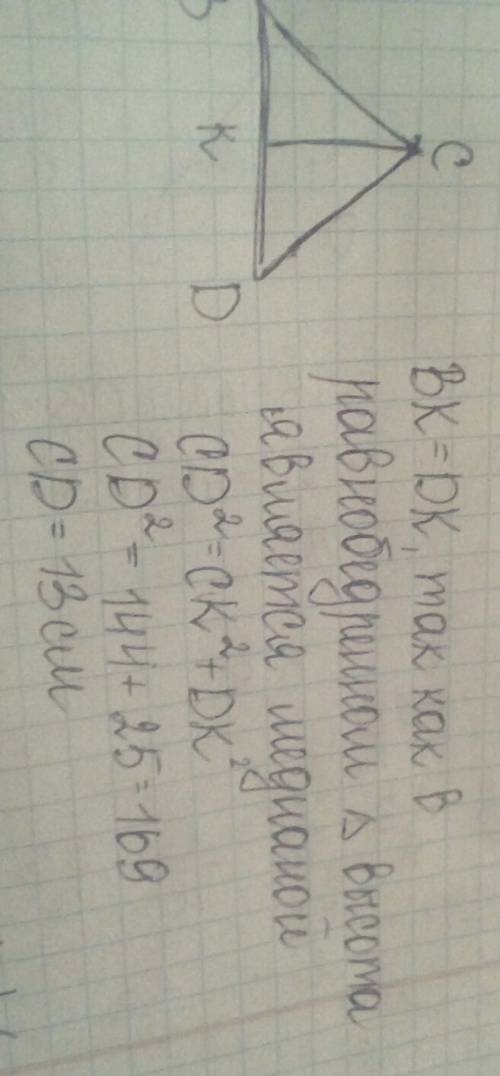 B
C
K
D
BK = DK, так как в
равнобедренном △ высота
является медианой
CD² = CK² + DK²
CD² = 144 + 25 = 169
CD = 13 см